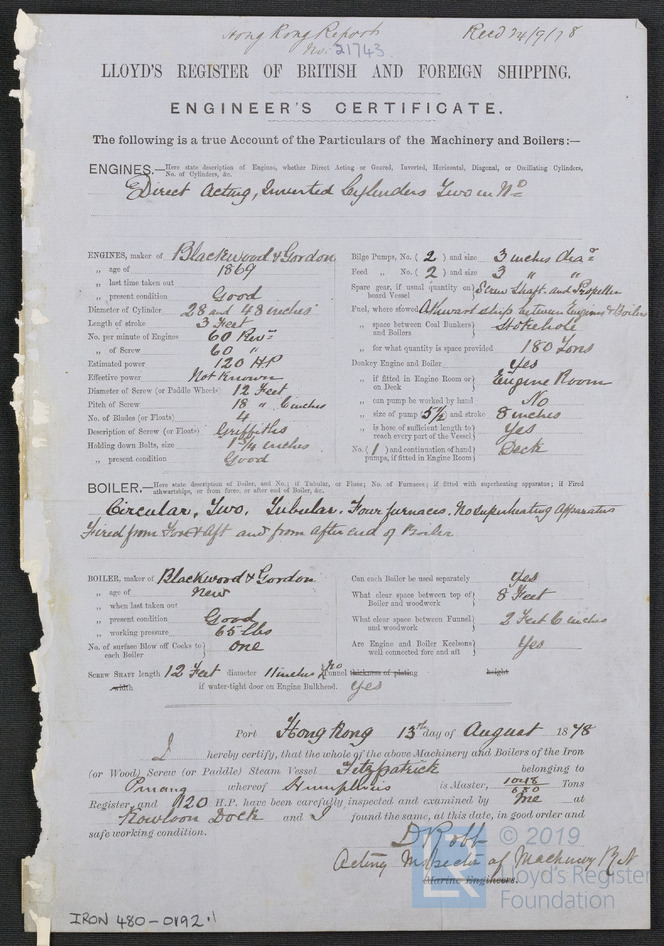 Hong Kong Report Recd 24/9/78
No. 21743
LLOYD'S REGISTER OF BRITISH AND FOREIGN SHIPPING.
ENGINEER'S CERTIFICATE.
The following is a true Account of the Particulars of the Machinery and Boilers:—
ENGINES.—Here state description of Engines, whether Direct Acting or Geared, Inverted, Horizontal, Diagonal, or Oscillating Cylinders,
No. of Cylinders, &c.
Direct Acting, Inverted Cylinders Two in No
ENGINES, maker of Blackwood & Gordon
„ age of 1869
„ last time taken out
„ present condition Good
Diameter of Cylinder 28 and 48 inches
Length of stroke 3 Feet
No. per minute of Engines 60 Revs
„ of Screw 60 "
Estimated power 120 HP
Effective power Not Known
Diameter of Screw (or Paddle Wheels) 12 Feet
Pitch of Screw 18 " 6 inches
No. of Blades (or Floats) 4
Description of Screw (or Floats) Griffiths
Holding down Bolts, size 1 3/4 inches
„ present condition Good
Bilge Pumps, No. ( 2 ) and size 3 inches diar
Feed „ No. ( 2 ) and size 3 " "
Spare gear, if usual quantity on board Vessel } Screw Shaft and Propeller
Fuel, where stowed Athwart ship between Engines & Boilers
„ space between Coal Bunkers and Boilers } Stokehole
„ for what quantity is space provided 180 Tons
Donkey Engine and Boiler Yes
„ if fitted in Engine Room or on Deck } Engine Room
„ can pump be worked by hand No
„ size of pump 5 1/2 and stroke 8 inches
„ is hose of sufficient length to reach every part of the Vessel } Yes
No. ( 1 ) and continuation of hand pumps, if fitted in Engine Room } Deck
BOILER.—Here state description of Boiler, and No.; if Tubular, or Flue; No. of Furnaces; if fitted with superheating apparatus; if Fired
athwartships, or from fore, or after end of Boiler, &c.
Circular, Two, Tubular. Four furnaces. No superheating Apparatus
Fired from Fore & Aft and from After end of Boiler
BOILER, maker of Blackwood & Gordon
„ age of New
„ when last taken out
„ present condition Good
„ working pressure 65 lbs
No. of surface Blow off Cocks to each Boiler } One
Can each Boiler be used separately Yes
What clear space between top of Boiler and woodwork } 8 Feet
What clear space between Funnel and woodwork } 2 Feet 6 inches
Are Engine and Boiler Keelsons well connected fore and aft } Yes
SCREW SHAFT length 12 Feet diameter 11 inches No Tunnel thickness of plating height
width if water-tight door on Engine Bulkhead. Yes
Port Hong Kong 13th day of August 1878
I hereby certify, that the whole of the above Machinery and Boilers of the Iron
(or Wood) Screw (or Paddle) Steam Vessel Fitzpatrick belonging to
Penang whereof Humphries is Master, 1048/680 Tons
Register and 120 H.P. have been carefully inspected and examined by me at
Kowloon Dock and I found the same, at this date, in good order and
safe working condition.
D Robb
Acting Inspector of Machinery R.N
Marine Engineers.
© 2019
LR Lloyd's Register
Foundation
IRON 480-0192.1